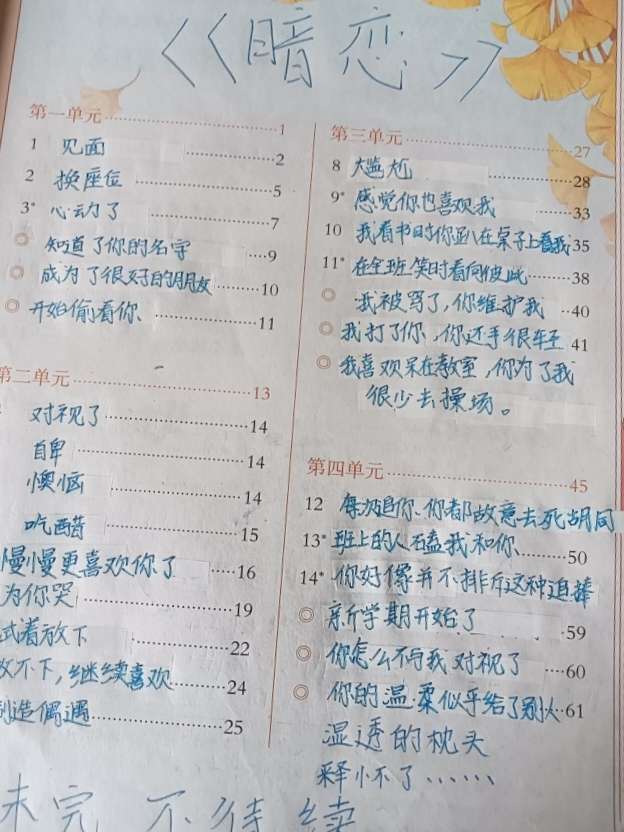 <<暗恋>>
第一单元……1
1 见面……2
2 换座位……5
3* 心动了……7
◎ 知道了你的名字……9
◎ 成为了很好的朋友……10
◎ 开始偷看你、……11
第二单元……13
对视了……14
自卑……14
懊恼……14
吃醋……15
慢慢更喜欢你了……16
为你哭……19
试着放下……22
放不下，继续喜欢……24
制造偶遇……25
第三单元……27
8 尴尬……28
9* 感觉你也喜欢我……33
10 我看书时你趴在桌子上看我35
11* 在全班笑时看向彼此……38
◎ 我被骂了，你维护我……40
◎ 我打了你，你还手很轻 41
◎ 我喜欢呆在教室，你为了我
很少去操场。
第四单元……45
12 每次追你、你都故意去死胡同
13* 班上的人磕我和你、……50
14* 你好像并不排斥这种追捧
◎ 新学期开始了……59
◎ 你怎么不与我对视了……60
◎ 你的温柔似乎给了别人……61
湿透的枕头
释怀不了……
未完 不待续